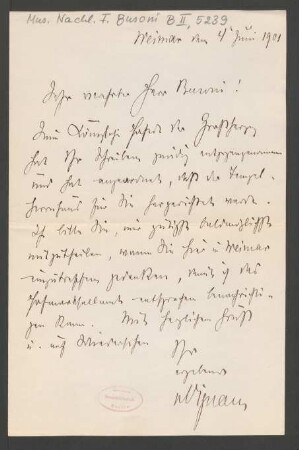 Mus. Nachl. F. Busoni B II, 5239
Weimar den 4 Juni 1901
Sehr verehrter Herr Busoni!
Seine Königliche Hoheit der Großherzog
hat Ihr Schreiben entgegengenommen
und hat angeordnet, daß das Tempel-
herrenhaus für Sie hergerichtet werde.
Ich bitte Sie, mir gütigst baldmöglichst
mitzutheilen, wann Sie hier in Weimar
einzutreffen gedenken, damit ich das
Hofmarschallamt entsprechend benachrichti-
gen kann. Mit herzlichem Gruß
u. auf Wiedersehen
Ihr
ergebener